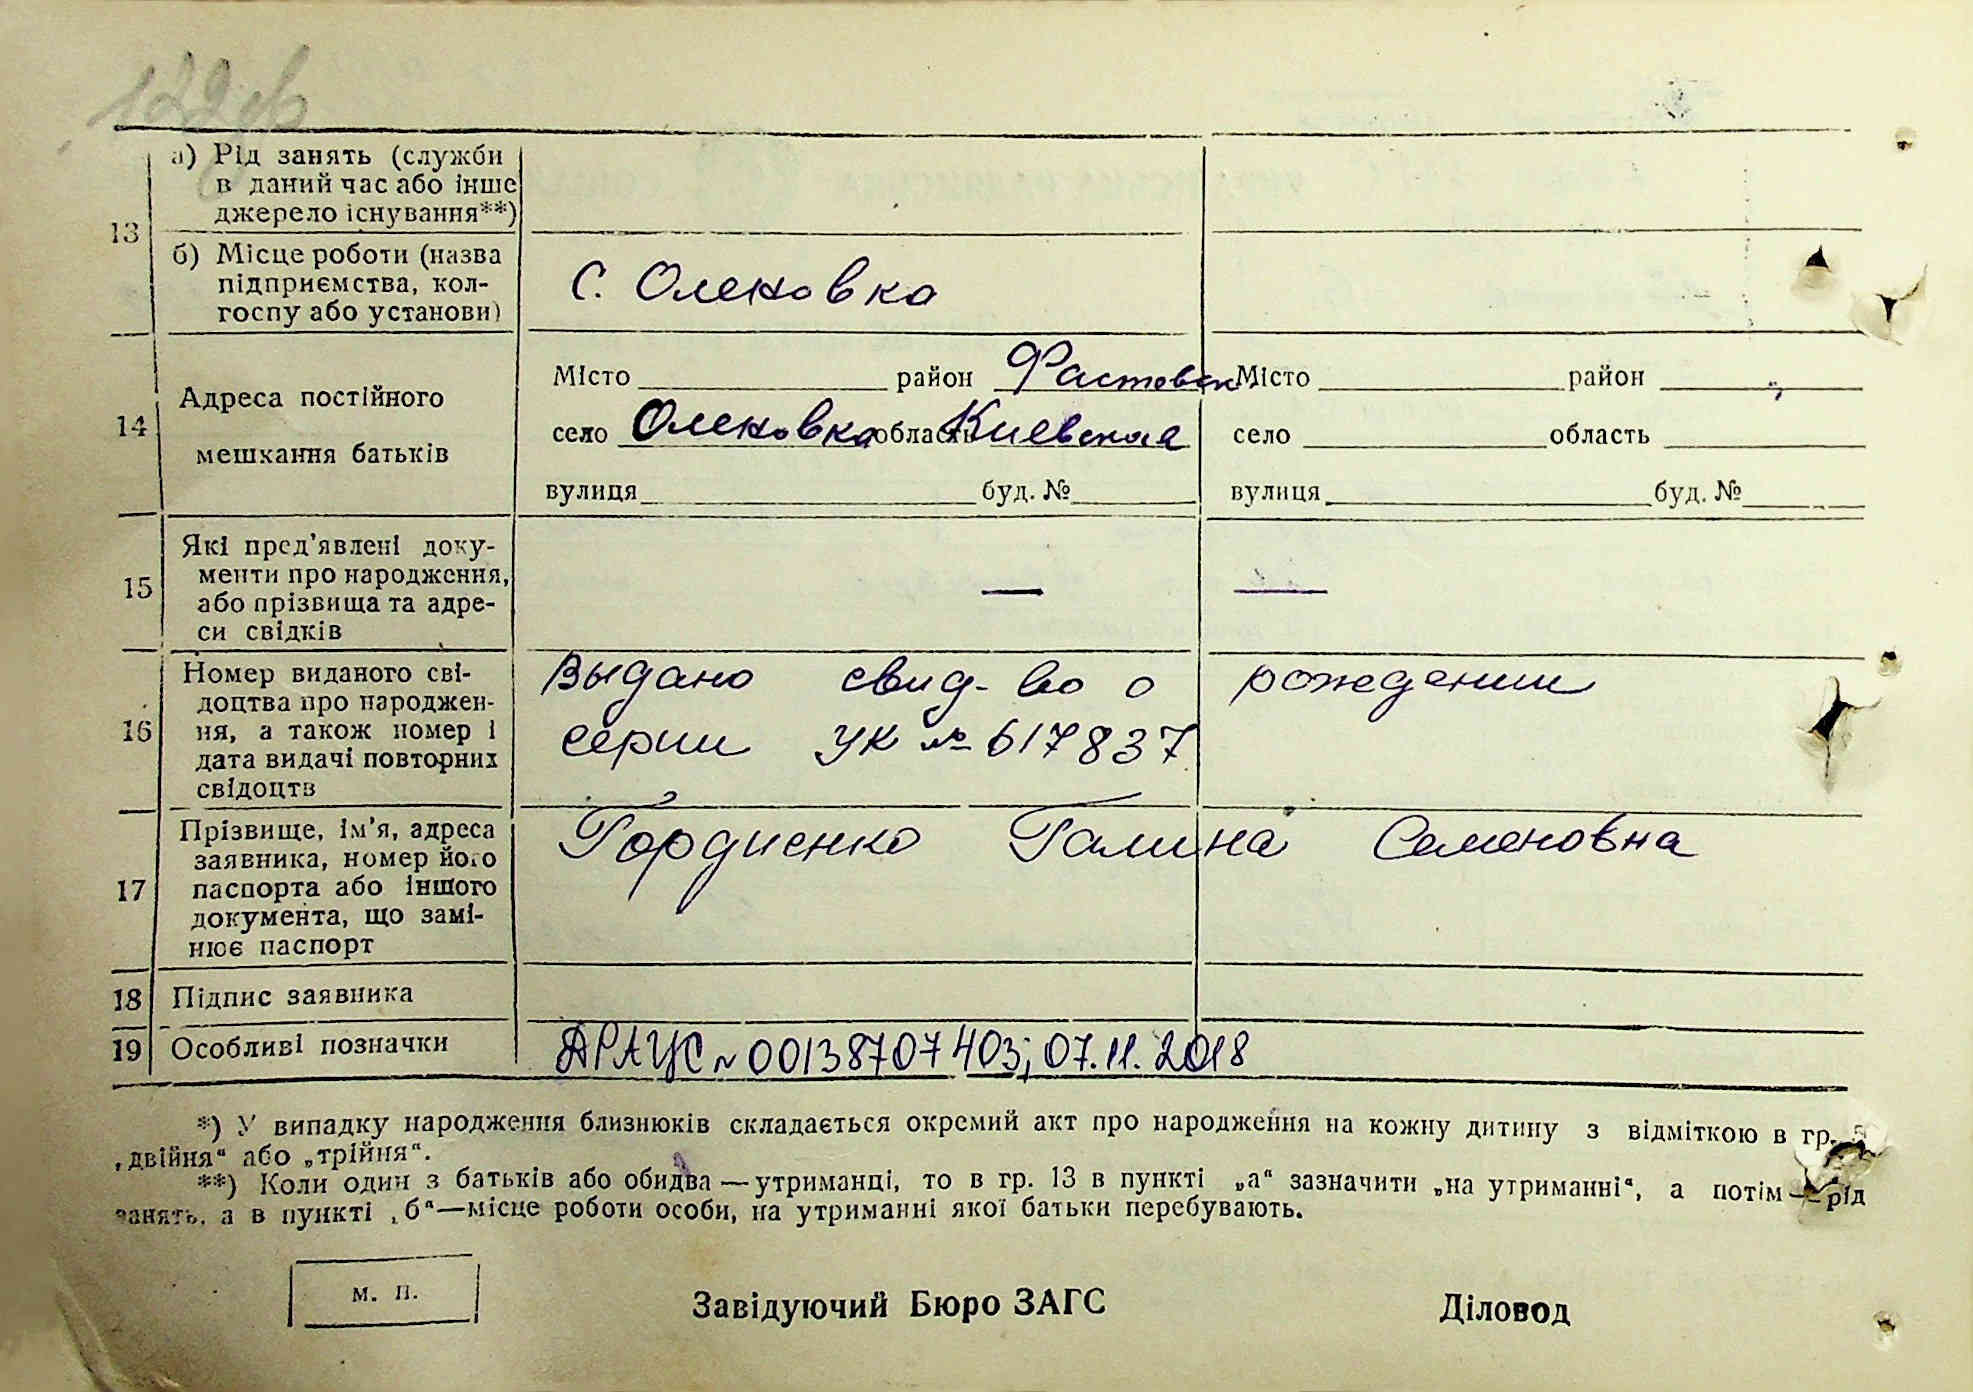 13
а) Рід занять (служби
в даний час або інше
джерело існування**)
б) Місце роботи (назва
підприємства, кол-
госпу або установи)
с. Оленовка
14
Адреса постійного
мешкання батьків
Місто район Фастовск
село Оленовка область Киевская
вулиця буд. №
Місто район
село область
вулиця буд. №
15
Які пред'явлені доку-
менти про народження,
або прізвища та адре-
си свідків
— —
16
Номер виданого сві-
доцтва про народжен-
ня, а також номер і
дата видачі повторних
свідоцтв
Выдано свид-во о рождении
серии УК № 617837
17
Прізвище, ім'я, адреса
заявника, номер його
паспорта або іншого
документа, що замі-
нює паспорт
Гордиенко Галина Семеновна
18 Підпис заявника
19 Особливі позначки
ДРАЦС № 00138707403; 07.11.2018
*) У випадку народження близнюків складається окремий акт про народження на кожну дитину з відміткою в гр. 5
„двійня“ або „трійня“.
**) Коли один з батьків або обидва — утриманці, то в гр. 13 в пункті „а“ зазначити „на утриманні“, а потім — рід
занять, а в пункті „б“—місце роботи особи, на утриманні якої батьки перебувають.
м. п.
Завідуючий Бюро ЗАГС
Діловод